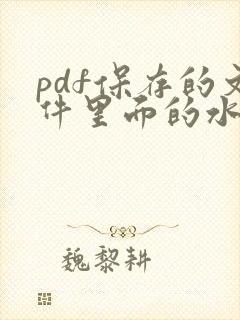 pdf保存的文
件里而的水
魏黎耕